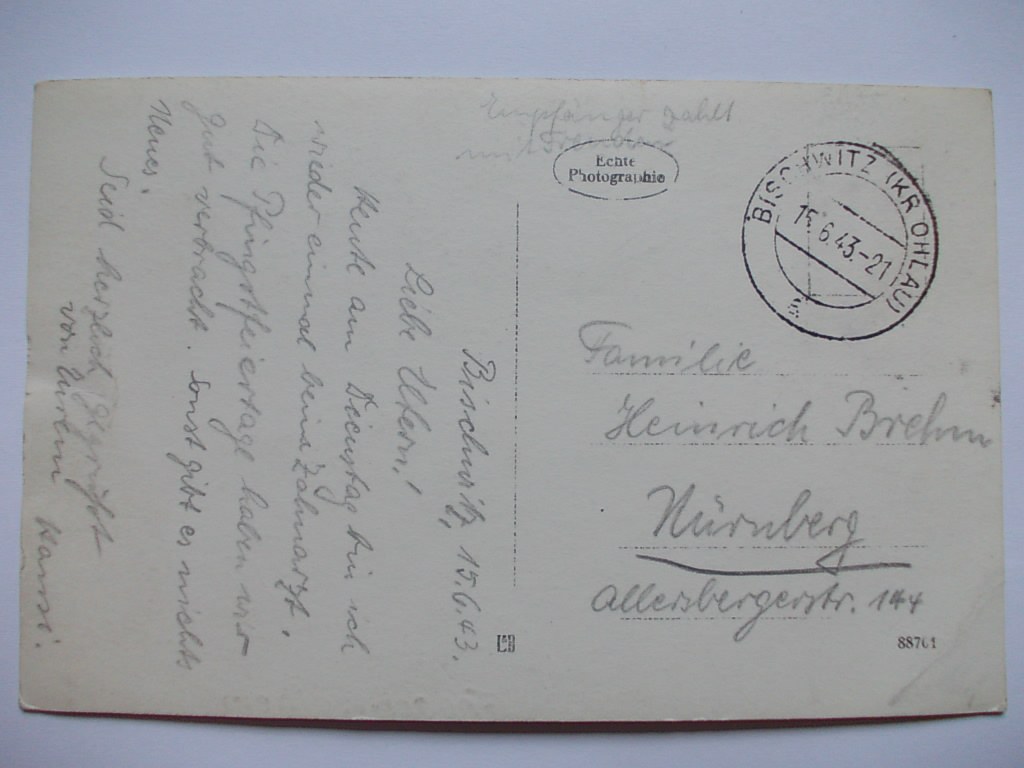 Bischwitz, 15.6.43.
Liebe Eltern!
Heute am Dienstag bin ich
wieder einmal beim Zahnarzt.
Die Pfingstfeiertage haben wir
gut verbracht. Sonst gibt es nichts
Neues.
Seid herzlich gegrüßt
von Eurem
Hansi.
Empfänger zahlt
Echte
Photographie
BISCHWITZ (KR OHLAU)
15.6.43.-21
Familie
Heinrich Brehm
Nürnberg
Allersbergerstr. 144
88701